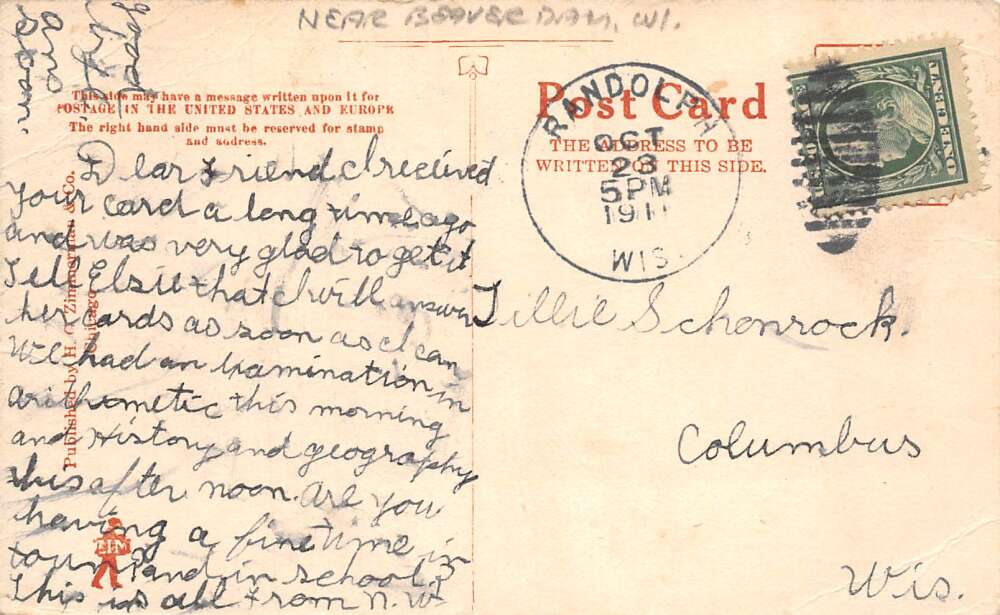 NEAR BEAVER DAM, WI.
This side may have a message written upon it for
POSTAGE IN THE UNITED STATES AND EUROPE
The right hand side must be reserved for stamp
and address.
Post Card
THE ADDRESS TO BE
WRITTEN ON THIS SIDE.
RANDOLPH
OCT
28
5 PM
1911
WIS.
ONE CENT
Dear Friend I received
your card a long time ago
and was very glad to get it
Tell Elsie that I will answer
her cards as soon as I can
We had an examination in
arithometic this morning
and History and geography
this after noon. Are you
having a fine time in
town and in school?
This is all from N. W
good
Ans
soon.
Published by H. G. Zimmerman & Co.
Chicago
HGZ
Tillie Schonrock.
Columbus
Wis.